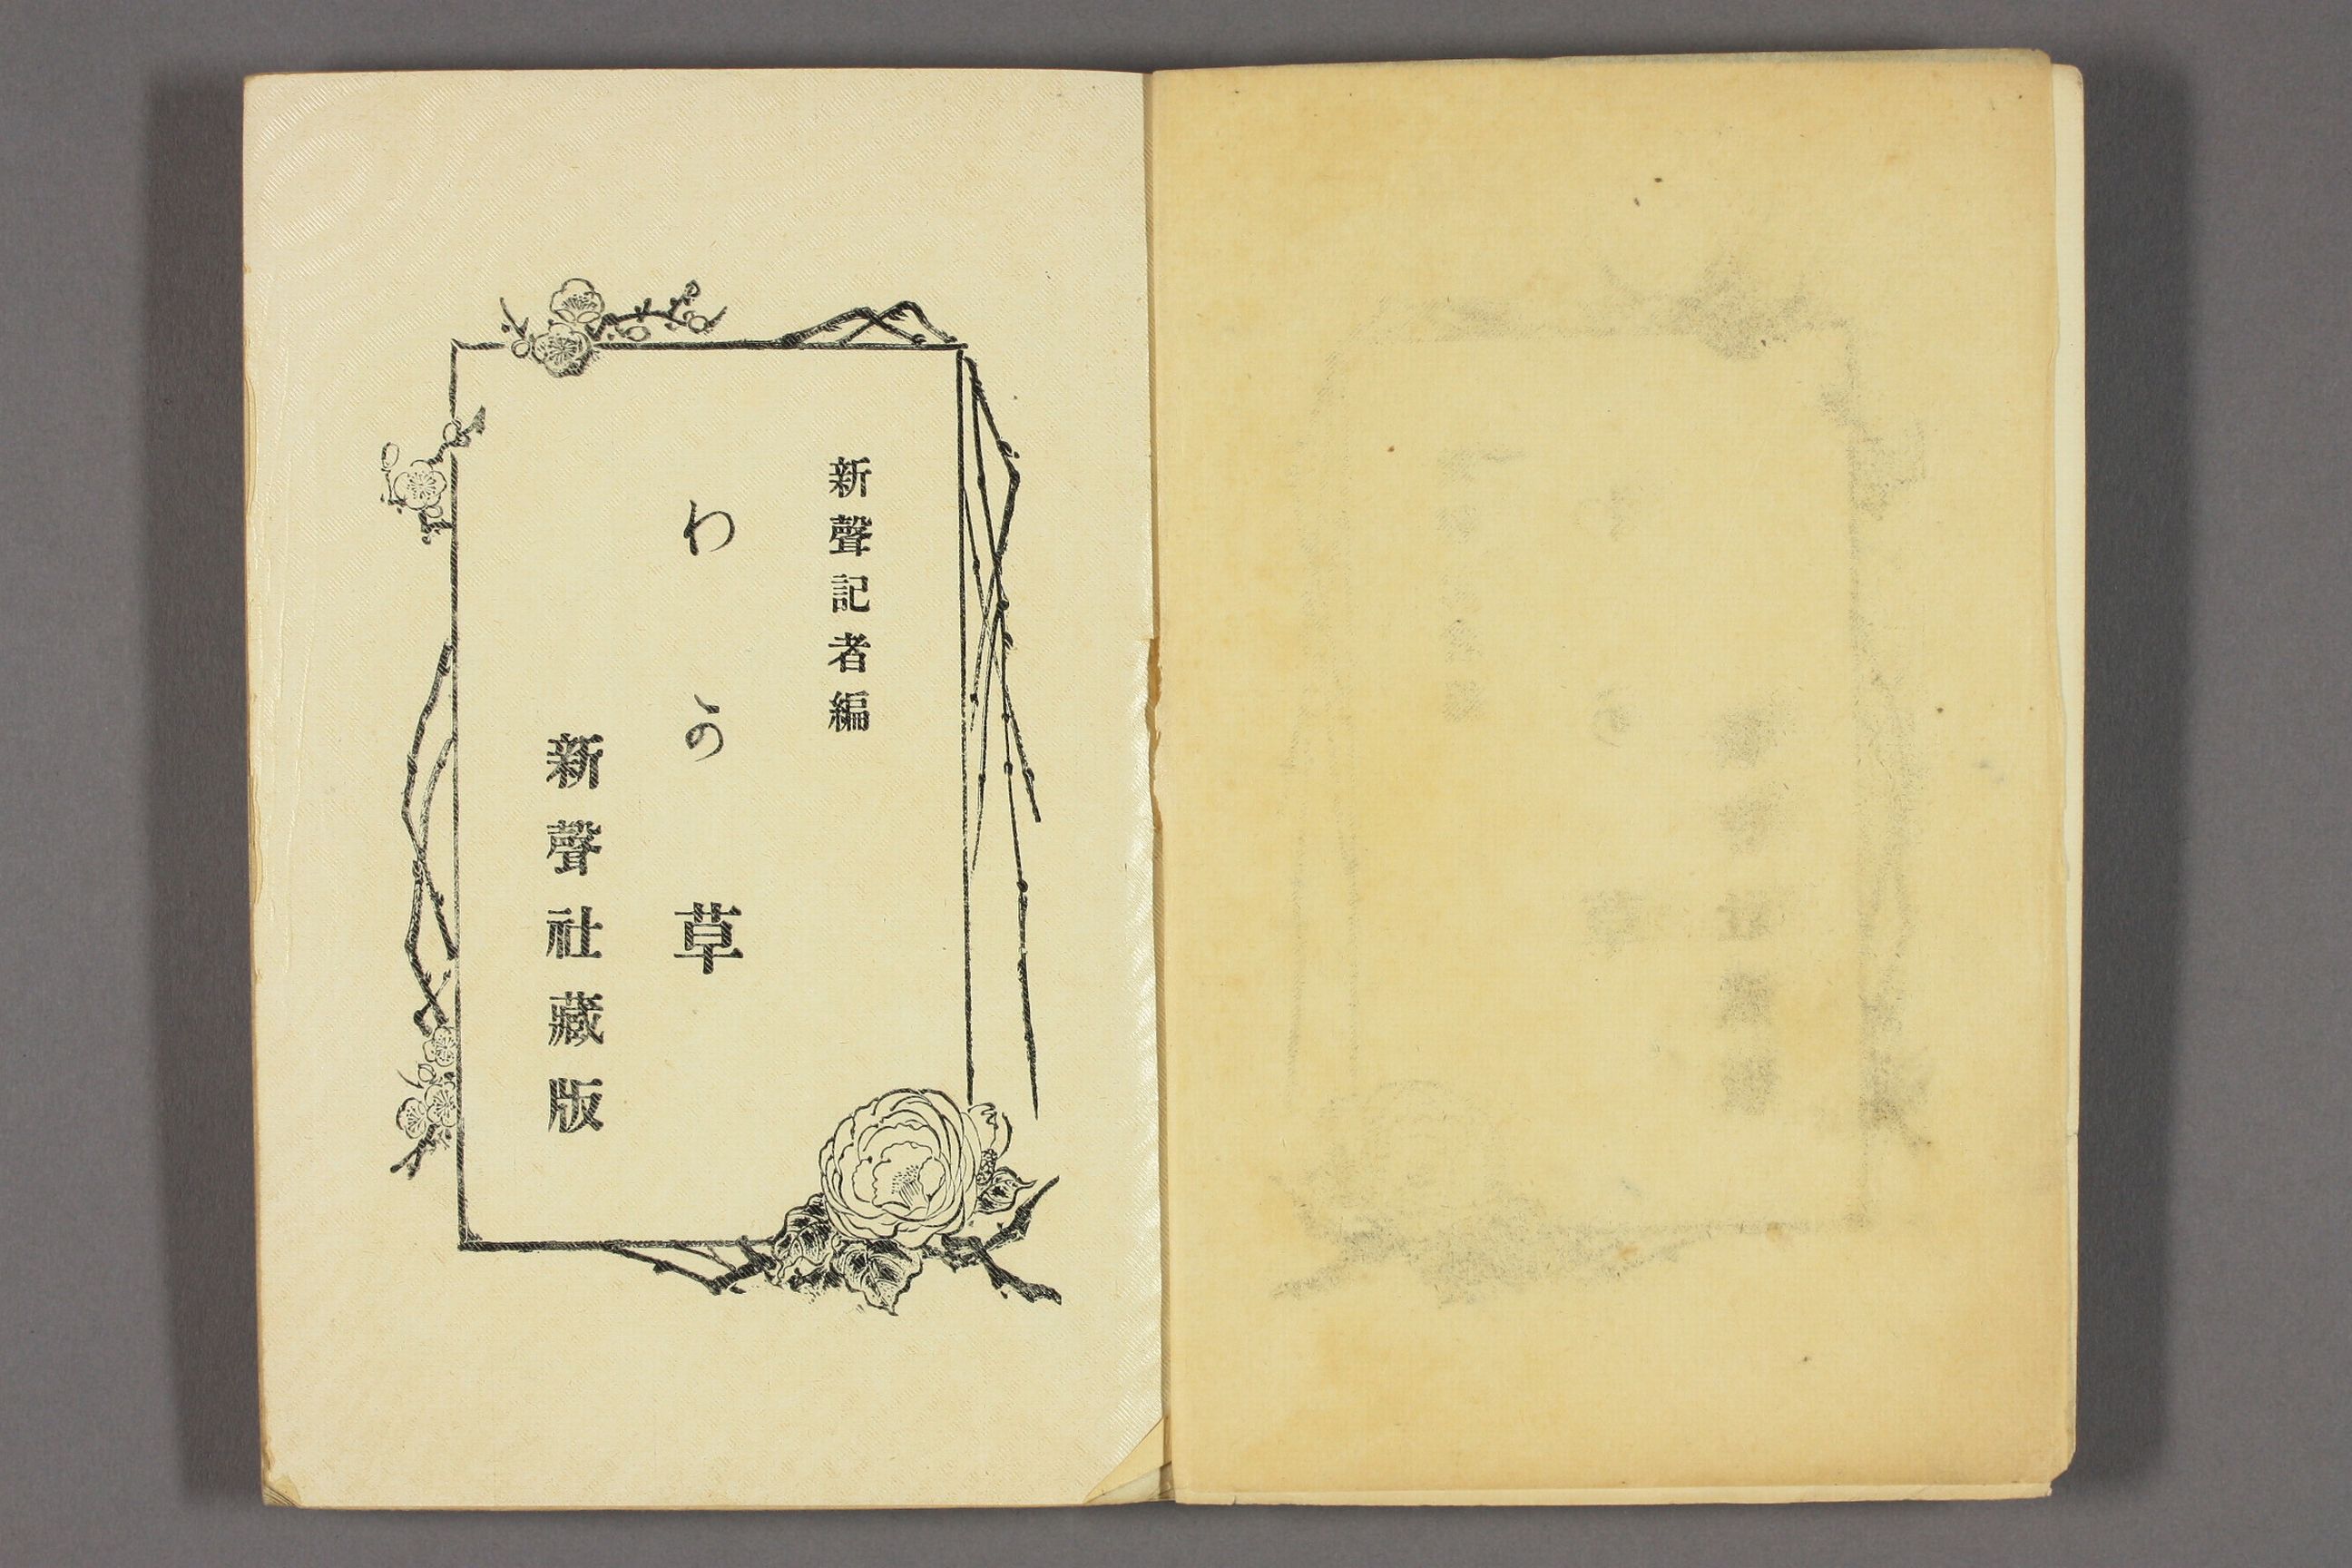 新聲記者編
わか草
新聲社藏版